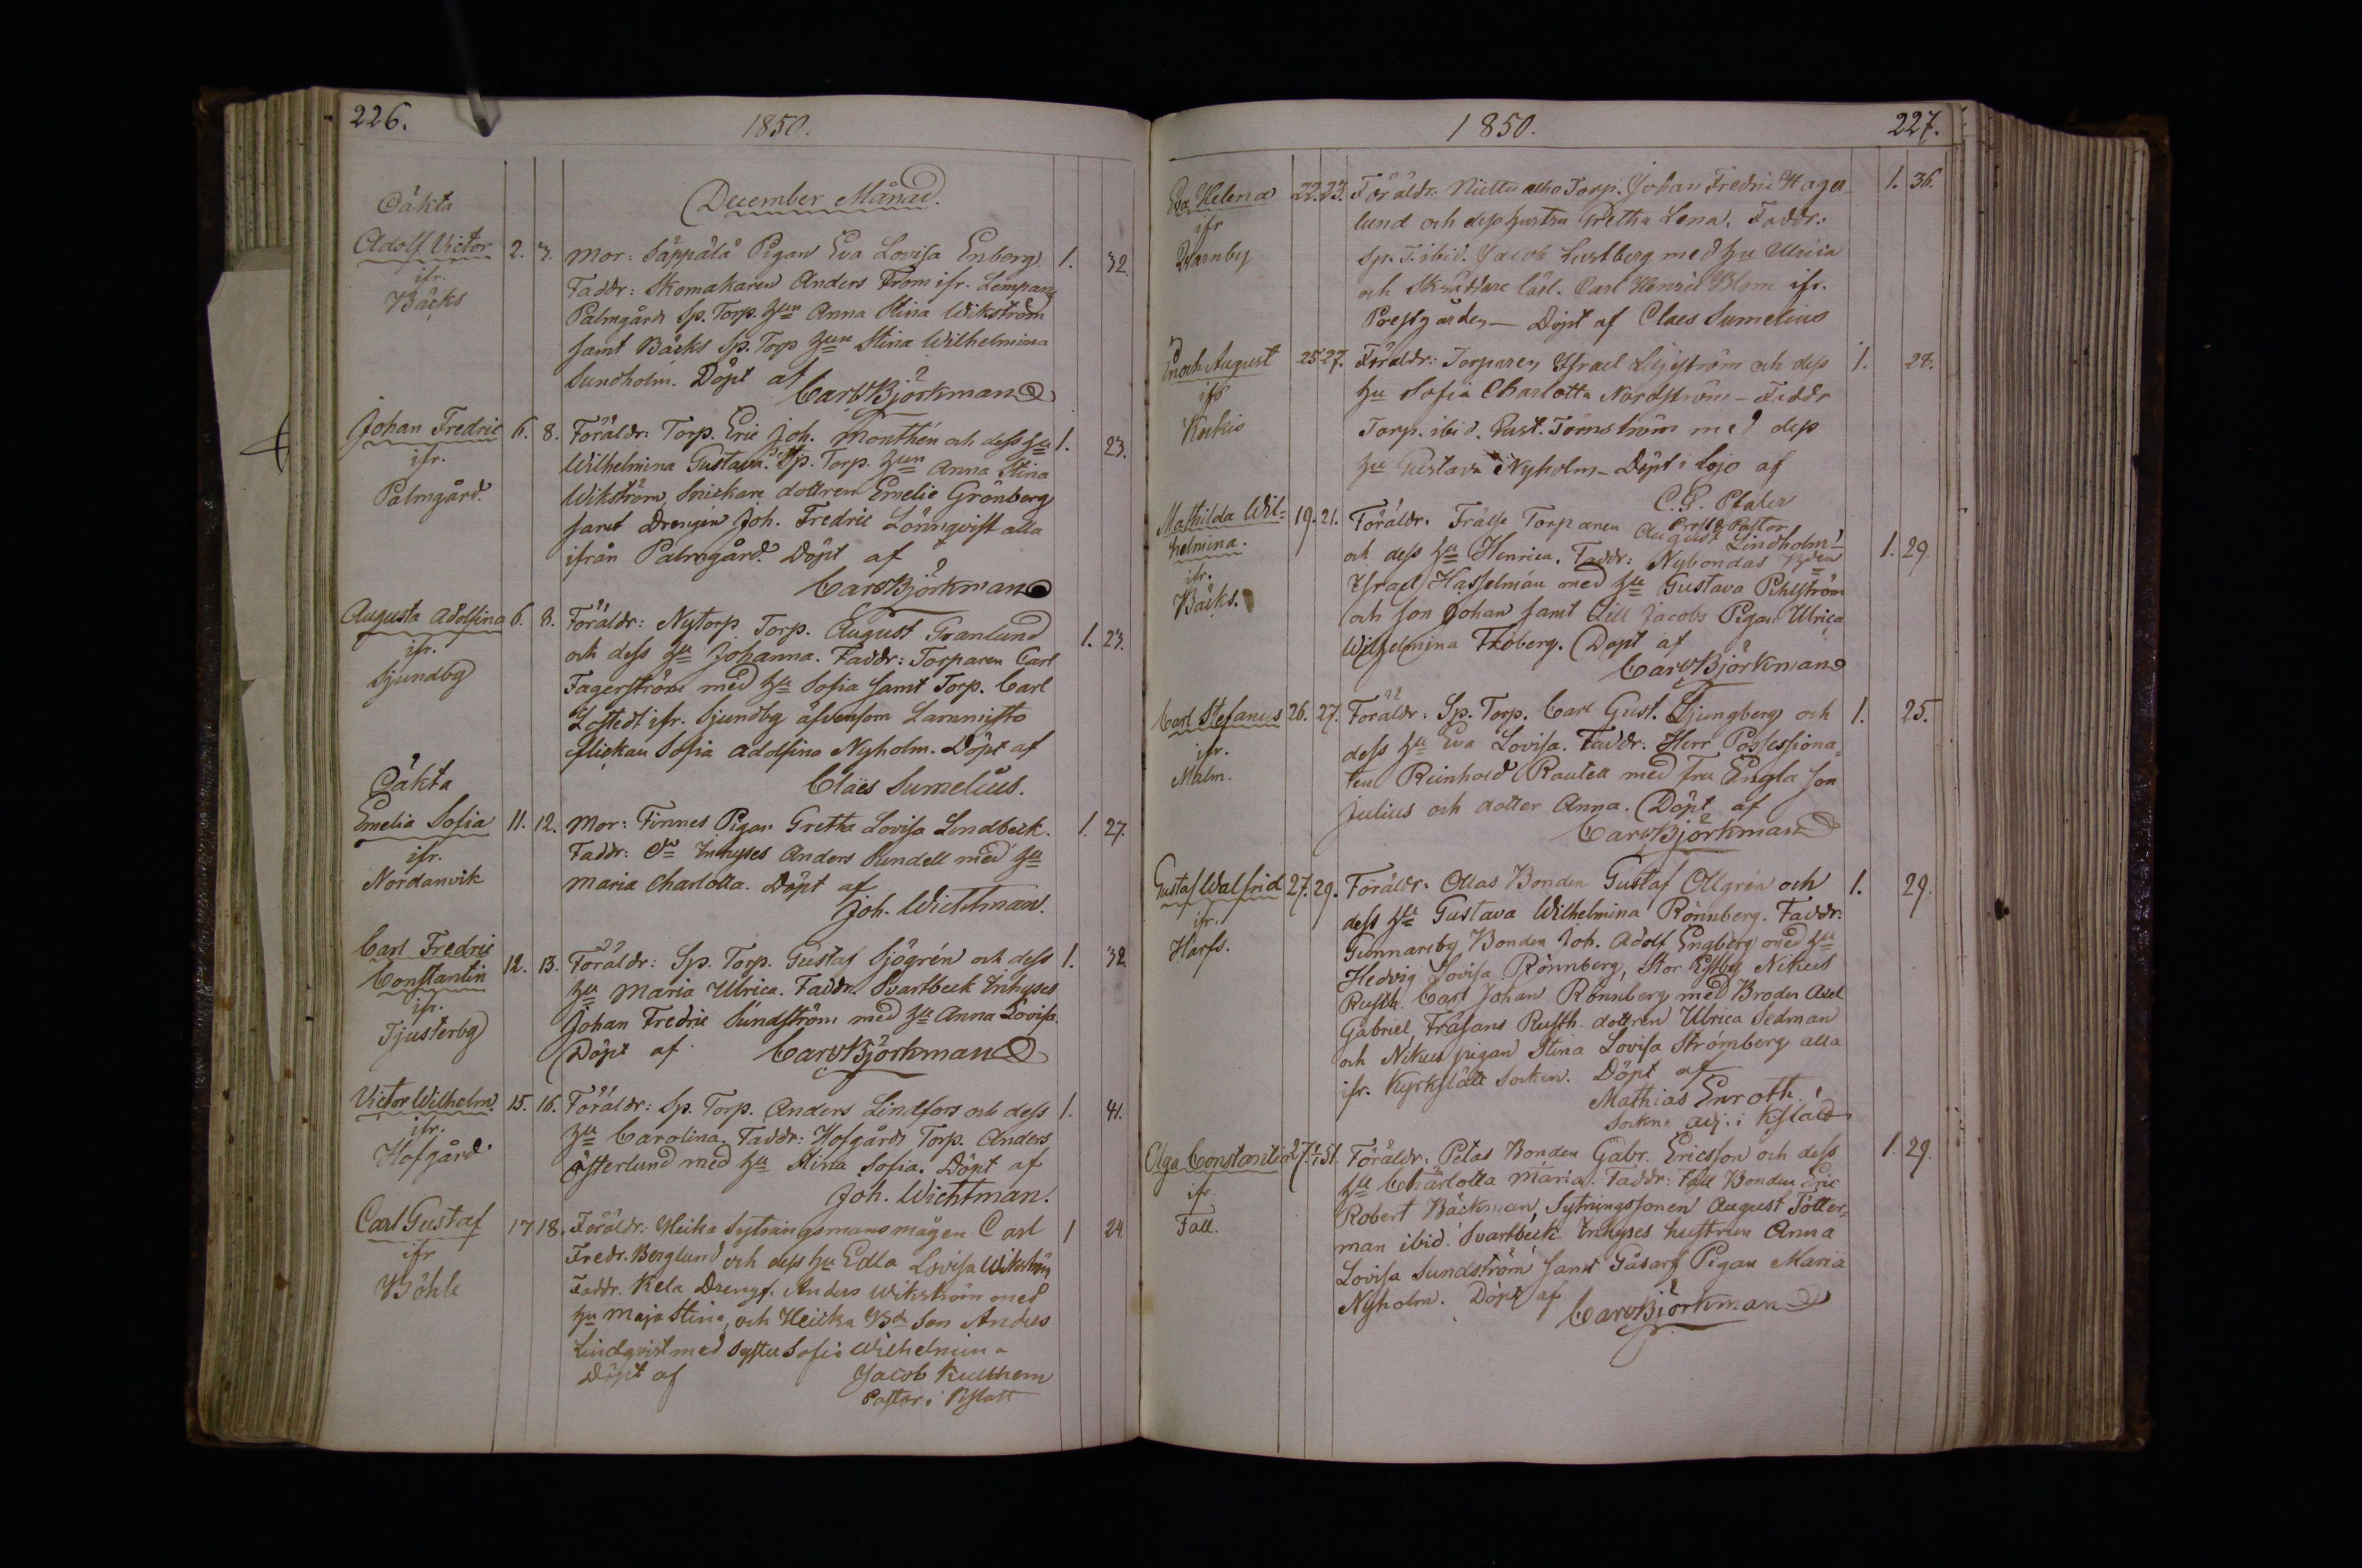 226.
1850.
December Månad.
Oäkta
Adolf Victor
ifr.
Bäcks
2. 3.
Mor: Säppälä Pigan Eva Lovisa Enberg.
Faddr: Skomakaren Anders From ifr. Lempans
Palmgårds Sp. Torp. hun Anna Stina Wikström
samt Bäcks Sp. Torp hun Stina Wilhelmina
Sundholm. Döpt af
Carl Björkman
1. 32
Johan Fredric
ifr.
Palmgård.
6. 8.
Föräldr: Torp. Eric Joh. Monthén och dess hu
Wilhelmina Gustava. Sp. Torp. hun Anna Stina
Wikström, Snickare dottren Emelie Grönberg
samt Drengen Joh. Fredric Lönnqvist alla
ifrån Palmgård. Döpt af
Carl Björkman
1. 23.
Augusta Adolfina
ifr.
Sjundby
6. 8.
Föräldr: Nytorp Torp. August Granlund
och dess hu Johanna. Faddr: Torparen Carl
Fagerström med hu Sofia samt Torp. Carl
Löfstedt ifr. Sjundby äfvensom Lammisto
flickan Sofia Adolfina Nyholm. Döpt af
Claës Sumelius.
1. 23.
Oäkta
Emelia Sofia
ifr.
Nordanvik
11. 12.
Mor: Finnes Pigan Gretha Lovisa Lindbeck.
Faddr: Inhyses Anders Rundell med hu
Maria Charlotta. Döpt af
Joh. Wichtman.
1. 27.
Carl Fredric
Constantin
ifr.
Tjusterby
12. 13.
Föräldr: Sp. Torp. Gustaf Sjögrén och dess
hu Maria Ulrica. Faddr. Svartbeck Inhyses
Johan Fredric Sundström med hu Anna Lovisa.
Döpt af Carl Björkman
1. 32
Victor Wilhelm.
ifr.
Hofgård.
15. 16.
Föräldr: Sp. Torp. Anders Lindfors och dess
hu Carolina. Faddr: Hofgårds Torp. Anders
Österlund med hu Stina Sofia. Döpt af
Joh. Wichtman.
1. 41.
Carl Gustaf
ifr
Böhle
17 18.
Föräldr: Heicka Sytningsmans mågen Carl
Fredr. Berglund och dess hu Edla Lovisa Wikström
Faddr. Kela Drengf. Anders Wikström med
hu Maja Stina, och Heicka Bde Son Anders
Lindqvist med Syster Sofia Wilhelmina
Döpt af Jacob Kullhem
Pastor i Kslatt
1 24
1850.
227.
Eva Helena
ifr
Warnby
22. 23.
Föräldr. Torp. Johan Fredric Hager
lund och dess hustru Gretha Lena. Faddr:
Sp. T. ibid. Jacob Lustberg med hu Ulrica
och Skräddare lärl. Carl Henric Blom ifr.
Prestgården – Döpt af Claes Sumelius
1. 36.
Enoch August
ifr
Kockis
25 27.
Föräldr: Torparen Israel Liljeström och dess
hu Sofia Charlotta Nordström – Faddr
Torp. ibid. Gust. Törnström med dess
hu Gustava Nyholm – Döpt i Lojo af
C. G.
Pastor
1. 24.
Mathilda Wil=
helmina.
ifr.
Bäcks.
19. 21.
Föräldr. Frälse Torparen August Lindholm
och dess hu Henrica. Faddr: Nybondas
Israel Hasselman med hu Gustava Pihlström
och son Johan samt Lill Jacobs Pigan Ulrica
Wilhelmina Fröberg. Döpt af
Carl Björkman
1. 29.
Carl Stefanus
ifr.
Malm.
26. 27.
Föräldr: Sp. Torp. Carl Gust. Ljungberg och
dess hu Eva Lovisa. Faddr: Herr Possessiona=
ten Reinhold Rautell med Fru Engla son
Julius och dotter Anna. Döpt af
Carl Björkman
1. 25.
Gustaf Walfrid
ifr.
Harfs.
27. 29.
Föräldr: Ollas Bonden Gustaf Ollgrén och
dess hu Gustava Wilhelmina Rönnberg. Faddr:
Gunnarsby Bonden Joh. Adolf Engberg med hu
Hedvig Lovisa Rönnberg, Stor Estby Nikus
Rusth. Carl Johan Rönnberg med Broder Axel
Gabriel, Fräsans Rusth. dottren Ulrica Sedman
och Nikus pigan Stina Lovisa Strömberg alla
ifr. Kyrkslätt Socken. Döpt af
Mathias Enroth.
Sockne adj. i Kslätt
1. 29.
Olga Constantia
ifr.
Fall.
27. 1/1 51.
Föräldr: Petas Bonden Gabr. Ericsson och dess
hu Charlotta Maria. Faddr: Fall Bonden Eric
Robert Bäckman, Sytningssonen August Tötter=
man ibid. Svartbeck Inhyses hustrun Anna
Lovisa Sundström samt Gåsars Pigan Maria
Nyholm. Döpt af Carl Björkman
1. 29.